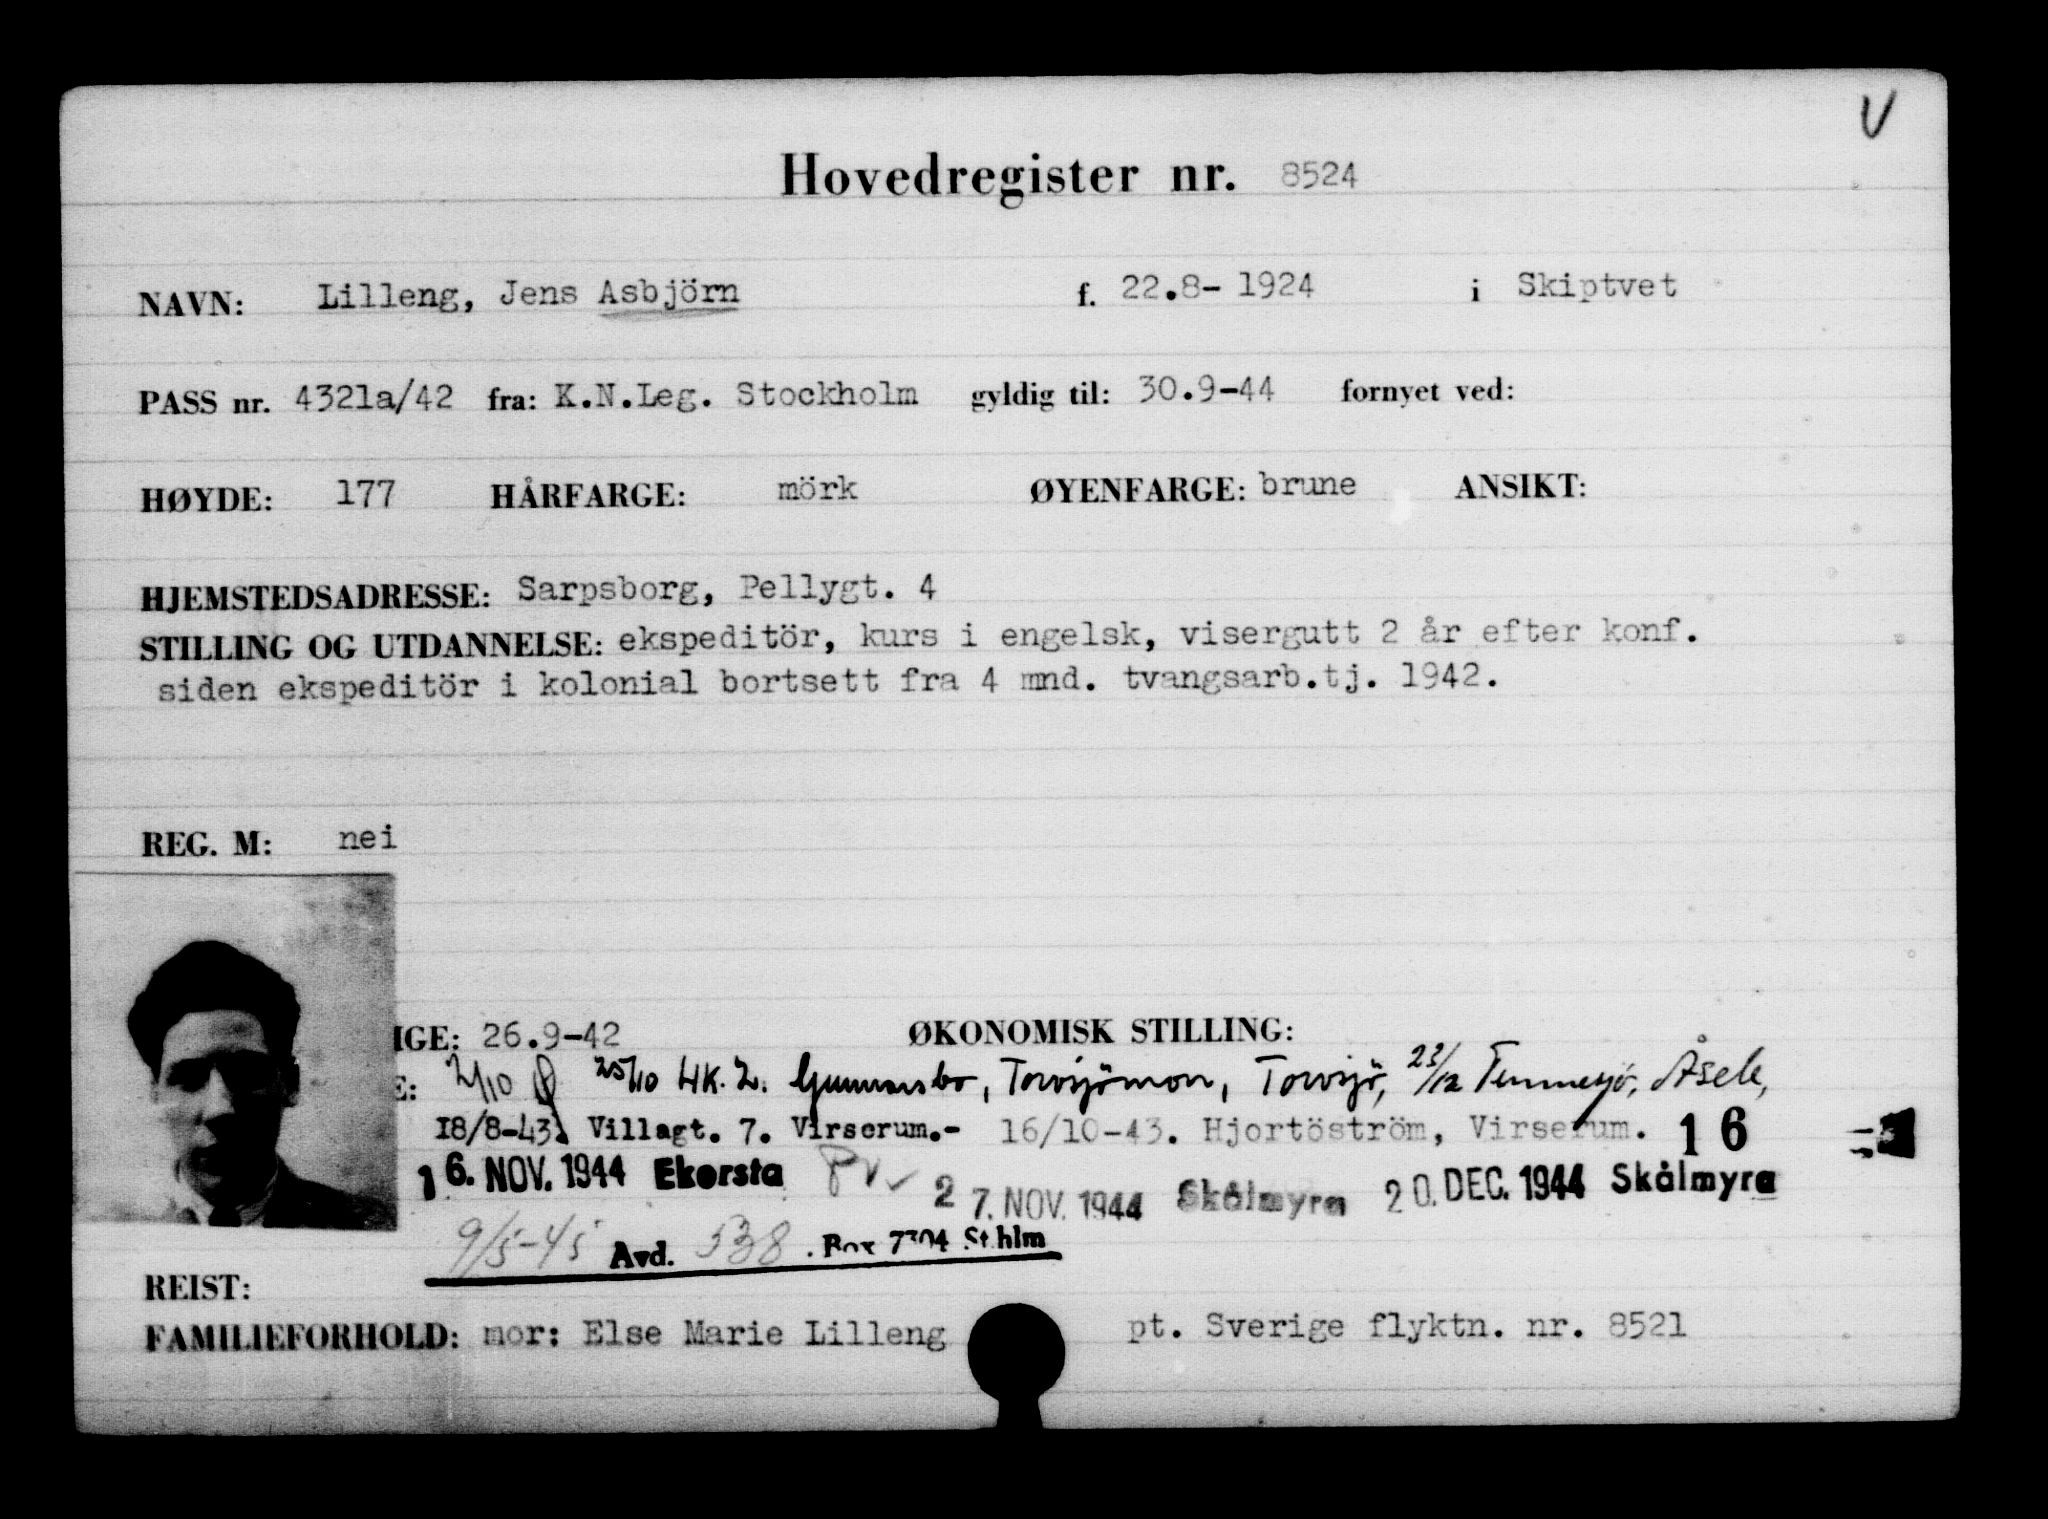 V
Hovedregister nr. 8524
NAVN: Lilleng, Jens Asbjörn f. 22.8-1924 i Skiptvet
PASS nr. 4321a/42 fra: K.N.Leg. Stockholm gyldig til: 30.9-44 fornyet ved:
HØYDE: 177 HÅRFARGE: mörk ØYENFARGE: brune ANSIKT:
HJEMSTEDSADRESSE: Sarpsborg, Pellygt. 4
STILLING OG UTDANNELSE: ekspeditör, kurs i engelsk, visergutt 2 år efter konf.
siden ekspeditör i kolonial bortsett fra 4 mnd. tvangsarb.tj. 1942.
REG. M: nei
IGE: 26.9-42 ØKONOMISK STILLING:
E: 2/10 Ø 25/10 HK. Z. Gunnarsbo, Torvsjömon, Torvsjö, 23/12 Åsele,
18/8-43. Villagt. 7. Virserum.- 16/10-43. Hjortöström, Virserum. 16
16. NOV. 1944 Ekorsta PV 27. NOV. 1944 Skålmyra 20. DEC. 1944 Skålmyra
9/5-45 Avd. 538. Box 7304 Sthlm
REIST:
FAMILIEFORHOLD: mor: Else Marie Lilleng pt. Sverige flyktn. nr. 8521